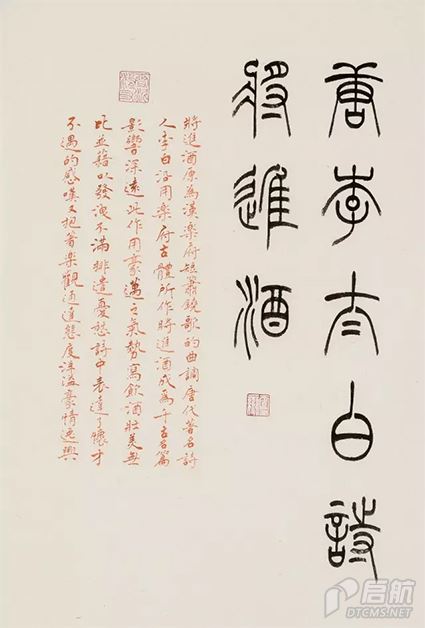 唐李太白詩
將進酒
將進酒原為漢樂府短簫鐃歌的曲調唐代著名詩
人李白沿用樂府古體所作將進酒成為千古名篇
影響深遠此作用豪邁之氣勢寫飲酒壯美無
比並藉以發洩不滿排遣憂愁詩中表達了懷才
不遇的感嘆又抱著樂觀通達態度洋溢豪情逸興
启航
DTCMS.NET